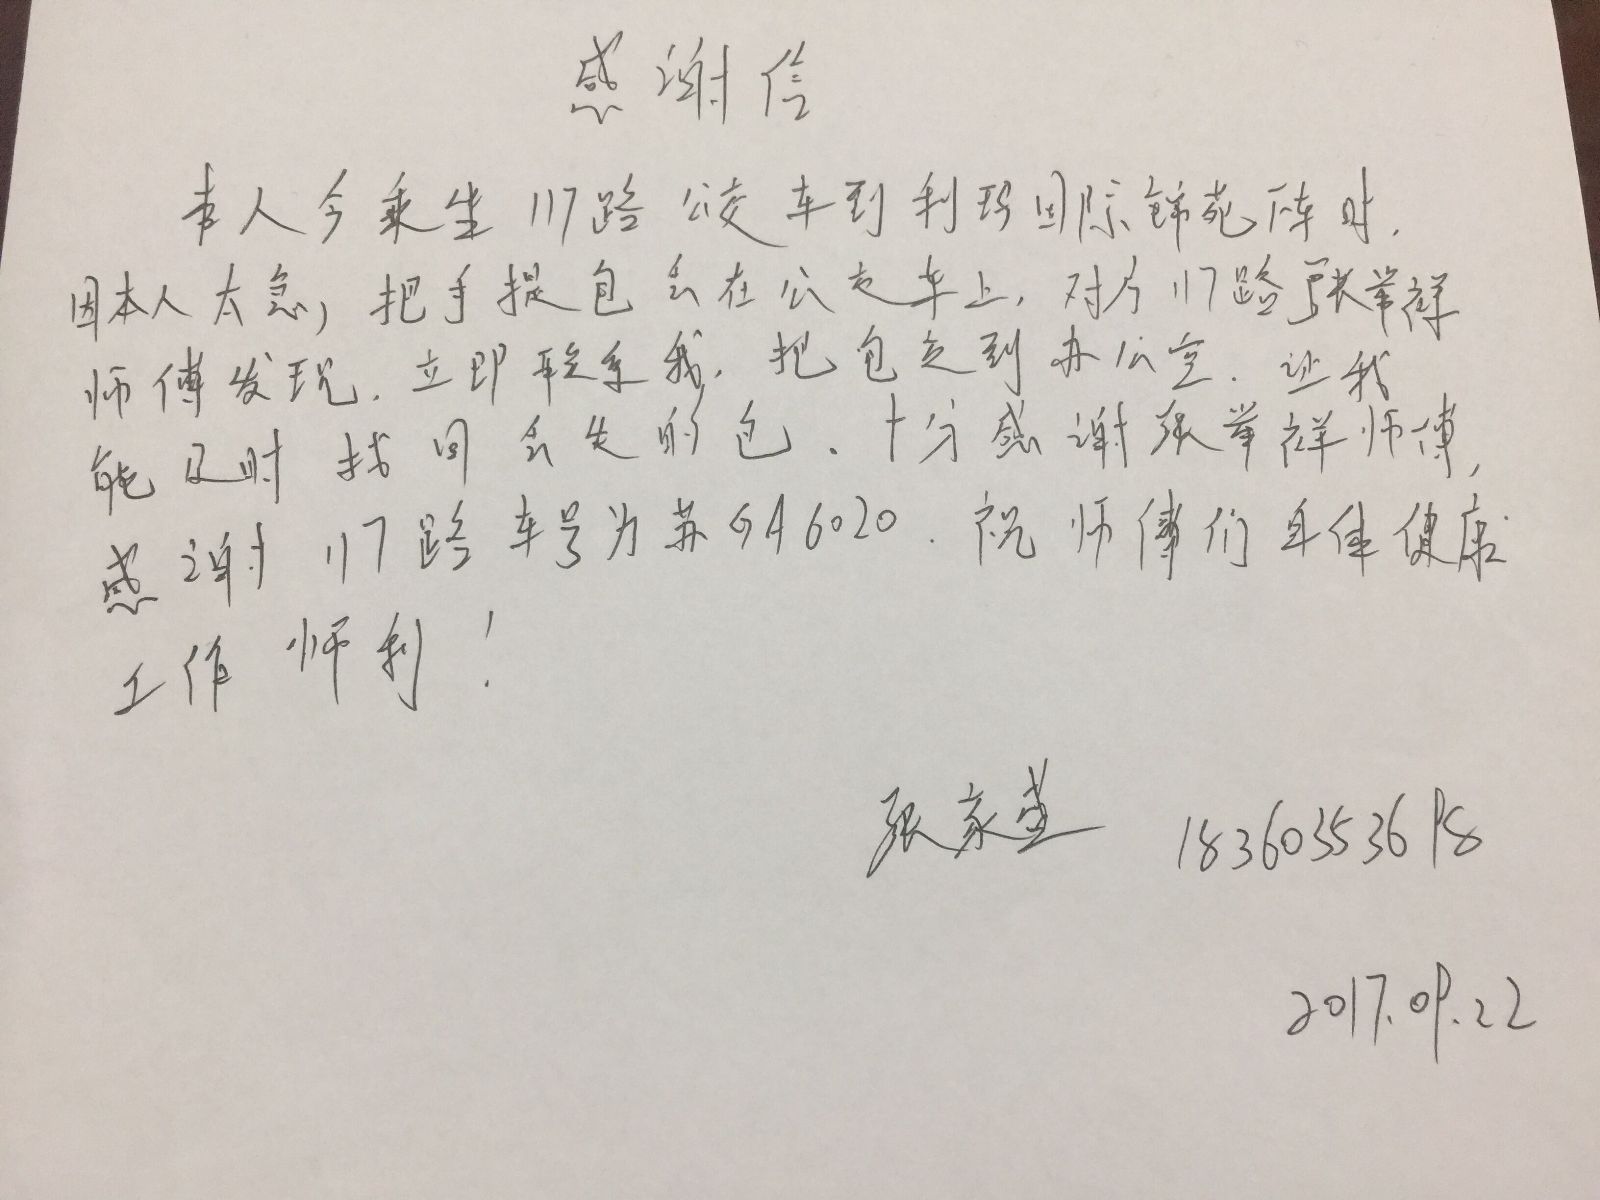 感谢信
本人今乘坐117路公交车到利玛国际锦苑下车时.
因本人太急,把手提包丢在公交车上.对于117路张举祥
师傅发现.立即联系我.把包交到办公室.让我
能及时找回丢失的包.十分感谢张举祥师傅,
感谢117路车号为苏GA6020.祝师傅们身体健康
工作师利!
张家 18360353698
2017.09.22